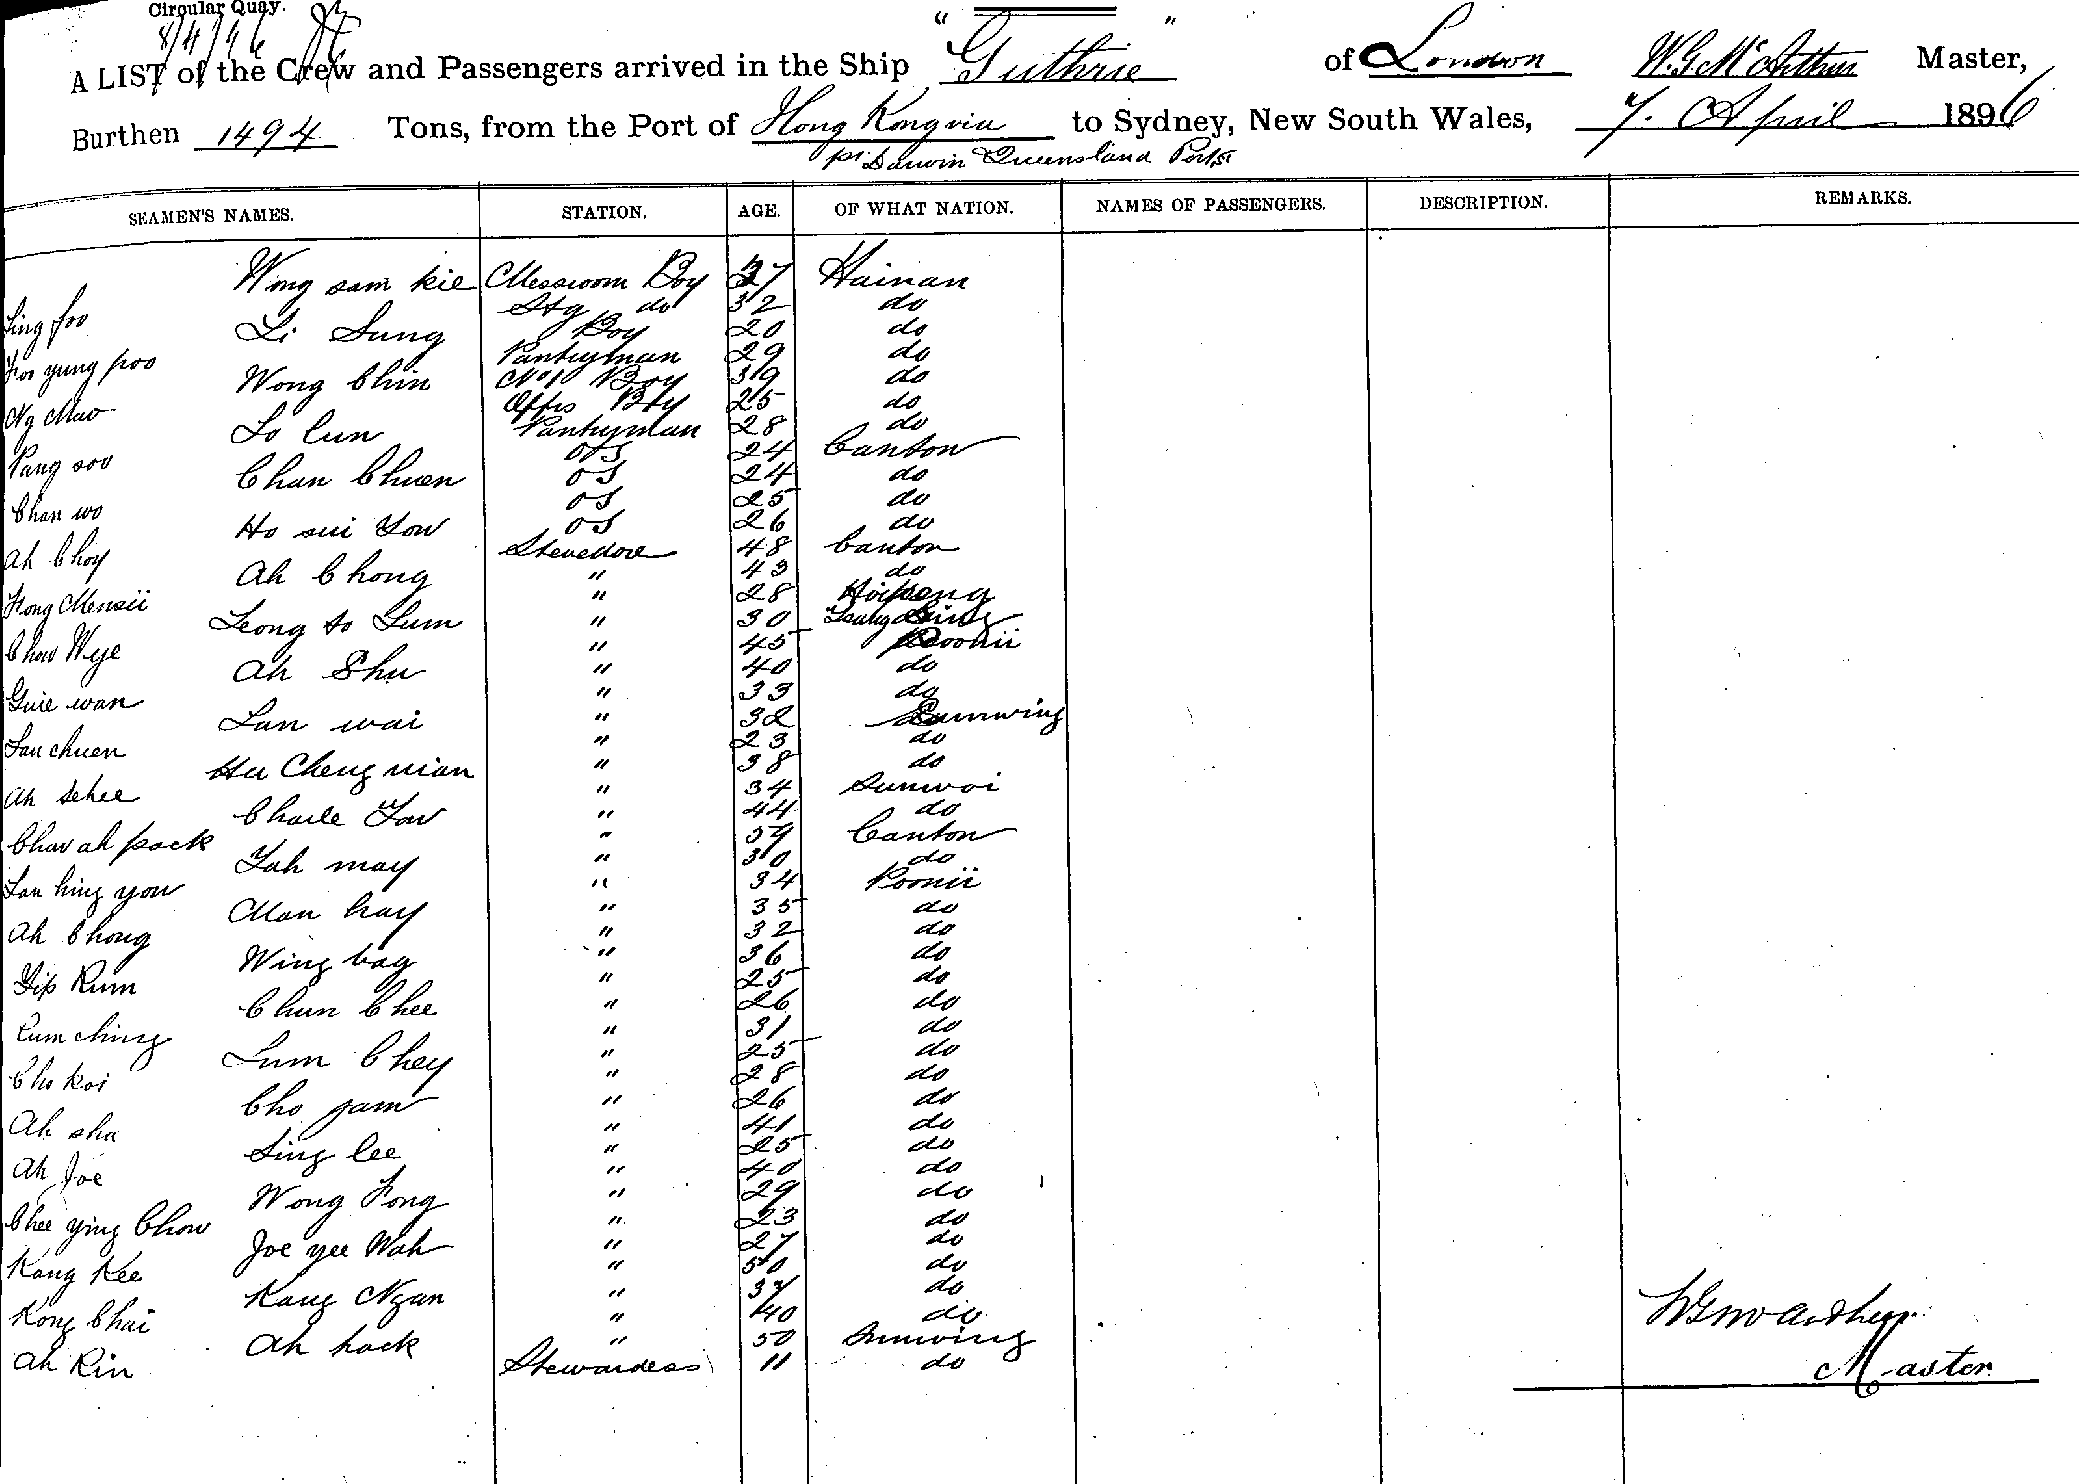 Circular Quay.
8/4/96
A LIST of the Crew and Passengers arrived in the Ship "Guthrie" of London W.G. McArthur Master,
Burthen 1494 Tons, from the Port of Hong Kong via to Sydney, New South Wales, 7. April 1896
pt Darwin Queensland Ports
SEAMEN'S NAMES. STATION. AGE. OF WHAT NATION. NAMES OF PASSENGERS. DESCRIPTION. REMARKS.
Wing sam kie Messroom Boy 27 Hainan
Sing foo Stg do 32 do
Li Sung Boy 20 do
Foo yung poo Pantryman 29 do
Wong Chin No1 Boy 39 do
Ng Mao Offrs Boy 25 do
Lo Cun Pantryman 28 do
Pang soo OS 24 Canton
Chan Chuen OS 24 do
Chan wo OS 25 do
Ho sui Yow OS 26 do
Ah Choy Stevedore 48 Canton
Ah Chong " 43 do
Hong Mensii " 28 Hoipeng
Leong to Lum " 30
Chow Wye " 45 Poonii
Ah Shu " 40 do
Guie wan " 33 do
Lan wai " 32 Sunwing
Lau chuen " 23 do
Hu Cheng nian " 38 do
Ah Sehee " 34 Sunwoi
Charle Yow " 44 do
Chav ah pack " 59 Canton
Yah may " 30 do
Lau hing you " 34 Poonii
Man hay " 35 do
Ah Chong " 32 do
Wing bag " 36 do
Yip Kum " 25 do
Chun Chee " 26 do
Lum ching " 31 do
Lum Chey " 25 do
Cho koi " 28 do
Cho yam " 26 do
Ah sha " 41 do
Sing lee " 25 do
Ah Joe " 40 do
Wong Fong " 29 do
Chee ying Chow " 23 do
Joe yee Wah " 27 do
Kang Kee " 50 do
Kang Ngan " 37 do
Kong Chai " 40 do
Ah hock " 50 Sunwing
Ah Kin Stewardess " do
WG McArthur
Master